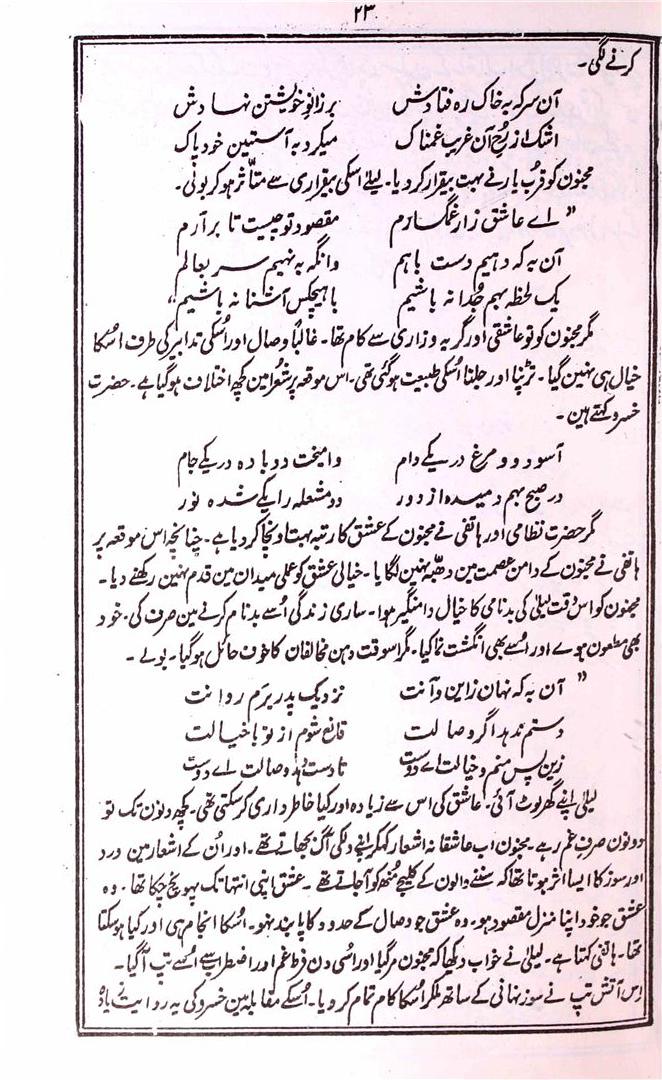 ۲۳
کرنے لگی۔
آن سر کہ بہ خاک رہ فتادش برزانوِ خویشتن نہادش
اشک از رخِ آن غریب غمناک میکرد بہ آستین خود پاک
مجنون کو قرُب یار نے بہت بیقرار کر دیا۔ لیلےٰ اسکی بیقراری سے متاثر ہو کر بولی۔
”اے عاشق زار غمگسارم مقصود تو چیست تا برآرم
آن بہ کہ دہیم دست باہم وانگہ بہ نہیم سر بعالم
یک لحظہ بہم جُدا نہ باشیم باہیچکس آشنا نہ باشیم“
مگر مجنون کو تو عاشقی اور گریہ و زاری سے کام تھا۔ غالباً وصال اور اُسکی تدابیر کی طرف اسُکا
خیال ہی نہین گیا۔ تڑپنا اور جلنا اُسکی طبیعت ہو گئی تھی۔ اس موقعہ پر شعُرا مین کچھ اختلاف ہو گیا ہے۔ حضرت
خسرو کہتے ہین۔
آسود دو مرغ در یکے دام وامیخت دو بادہ در یکے جام
در صبح بہم دمیدہ از دور دد مشعلہ را یکے شدہ نور
مگر حضرت نظامی اور ہاتفی نے مجنون کے عشق کا رتبہ بہت اونچا کر دیا ہے۔ چنانچہ اس موقعہ پر
ہاتفی نے مجنون کے دامن عصمت مین دھبّہ نہین لگایا۔ خیالی عشق کو عملی میدان مین قدم نہین رکھنے دیا۔
مجنون کو اس وقت لیلیٰ کی بدنامی کا خیال دامنگیر ہوا۔ ساری زندگی اُسے بدنام کرنے مین صرف کی۔ خود
بھی مطعون ہوے اور اُسے بھی انگشت نما کیا۔ مگر اسوقت دہن مخالفان کا خوف حائل ہو گیا۔ بولے۔
”آن بہ کہ نہان زاین و آنت نزدیک پدر برَم روانت
دستم ندہد اگر وصالت قانع شوم از تو با خیالت
زین پس منم و خیالت اے دوست تا دست دہد وصالت اے دوست
لیلیٰ اپنے گھر لوٹ آئی۔ عاشق کی اس سے زیادہ اور کیا خاطرداری کر سکتی تھی۔ کچھ دنون تک تو
دونون صرفِ غم رہے۔ مجنون اب عاشقانہ اشعار کہکر اپنے دلکی آگ بجھاتے تھے۔ اور اُن کے اشعار مین درد
اور سوز کا ایسا اثر ہوتا تھا کہ سننے والون کے کلیجے مُنھ کو آجاتے تھے۔ عشق اپنی انتہا تک پہونچ چکا تھا۔ وہ
عشق جو خود اپنا منزل مقصود ہو۔ وہ عشق جو وصال کے حدود کا پابند نہو۔ اسُکا انجام ہی اور کیا ہو سکتا
تھا۔ ہاتفی کہتا ہے۔ لیلیٰ نے خواب دیکھا کہ مجنون مر گیا اور اسُی دن فرط غم اور اضطراب سے اُسے تپ آ گیا۔
اِس آتش تپ نے سوز نہانی کے ساتھ ملکر اسُکا کام تمام کر دیا۔ اُسکے مقابلہ مین خسرو کی یہ روایت زیادہ